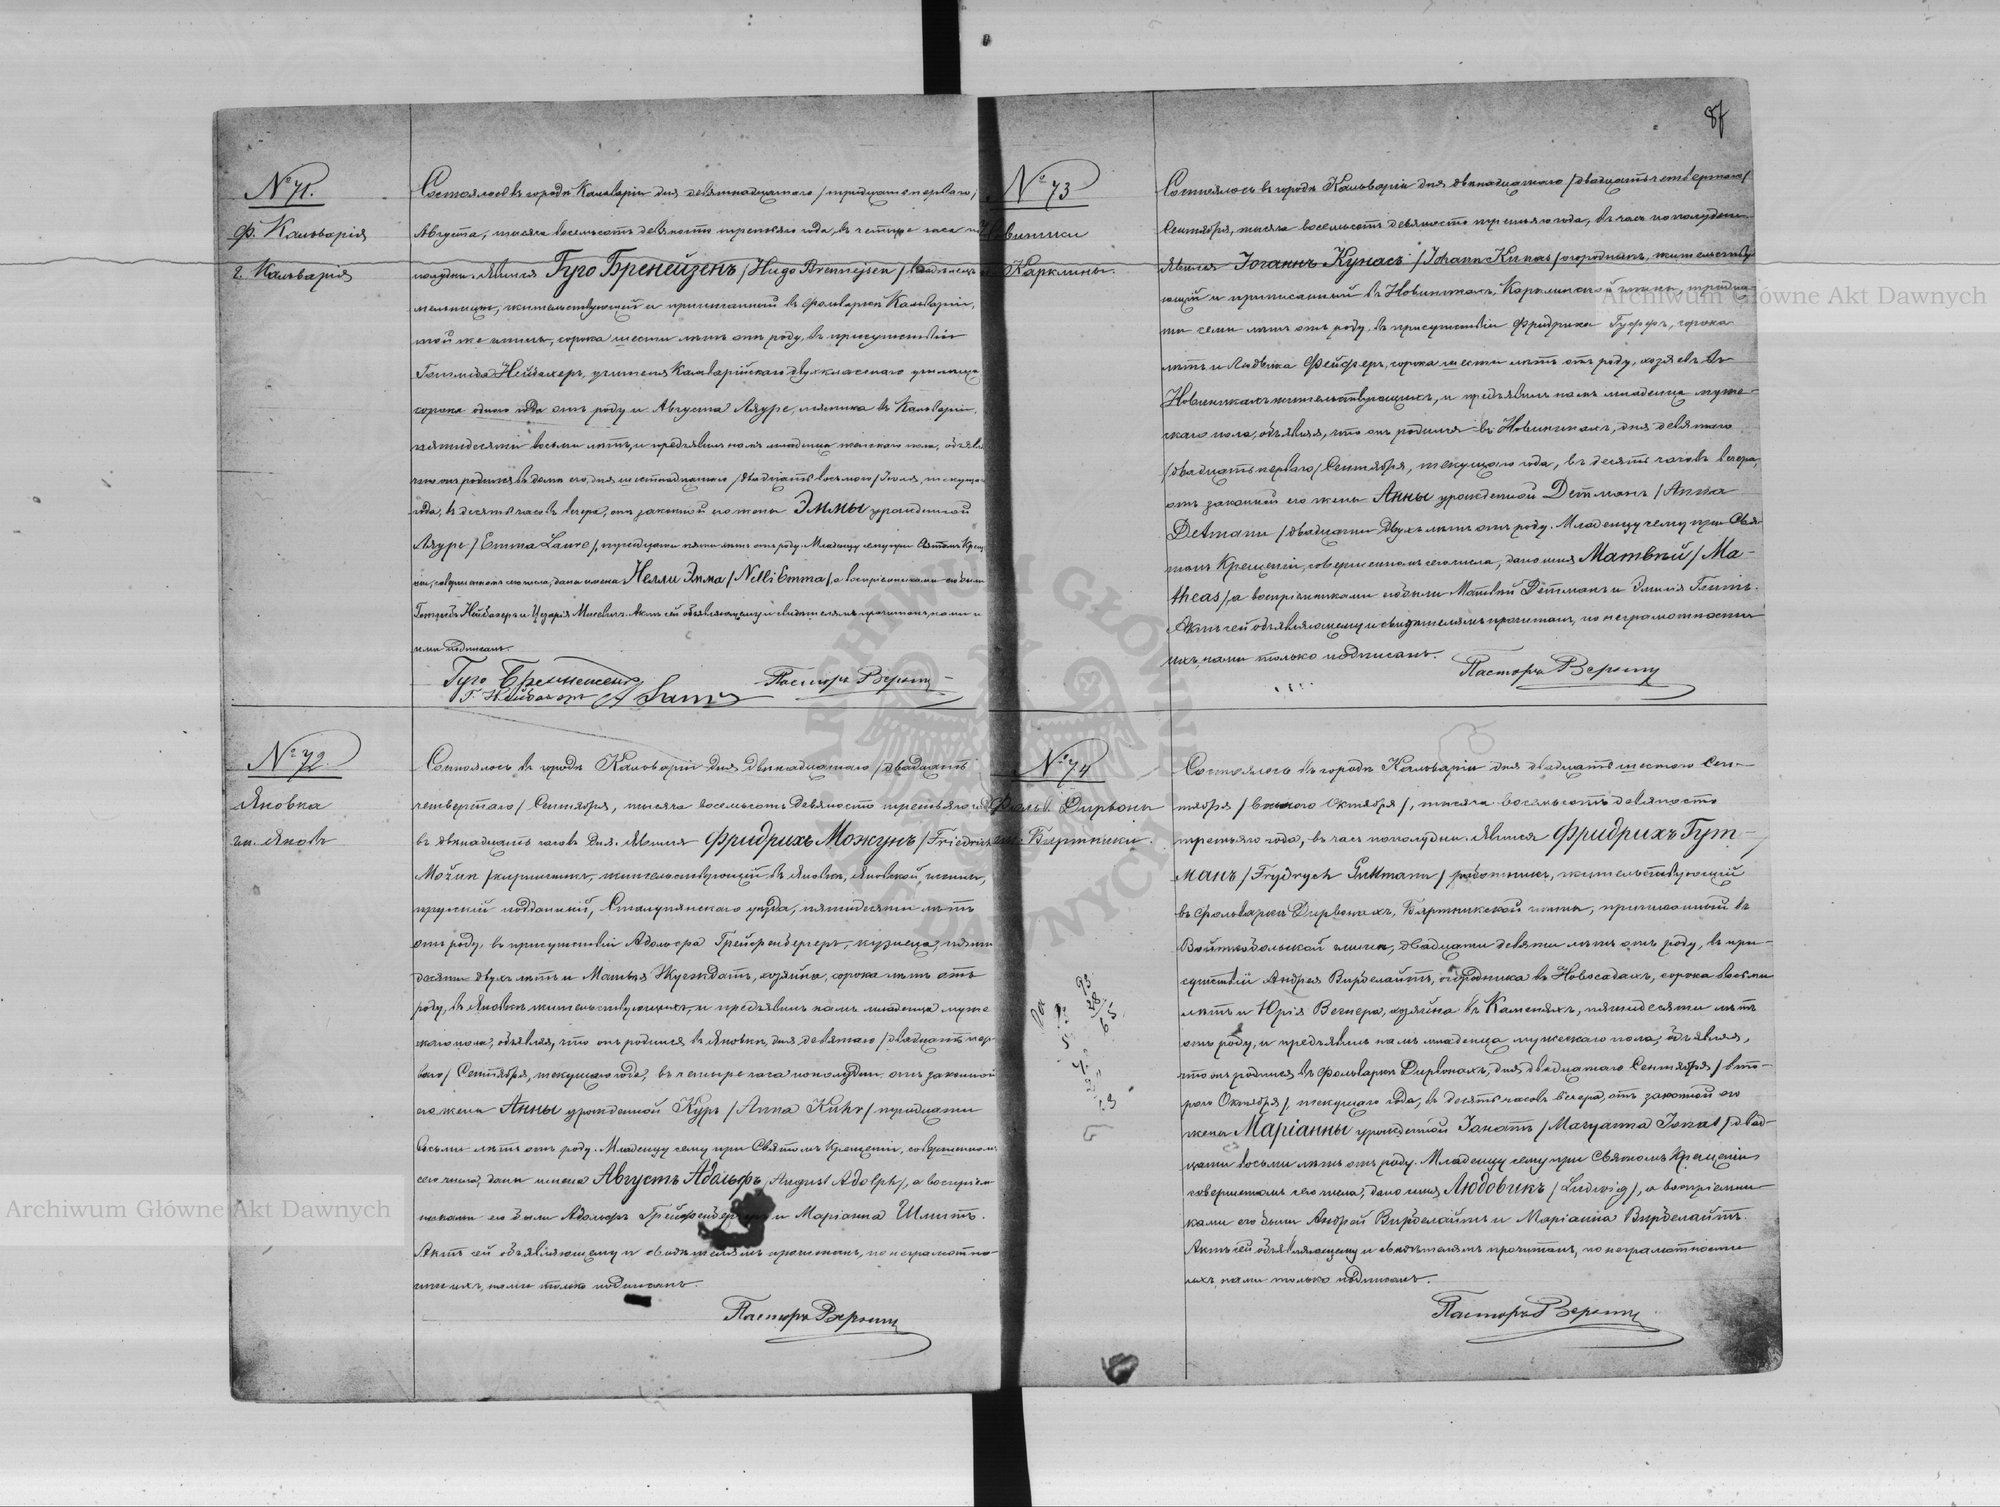 87
№ 71.
ф. Кальварія
г. Кальварія
Состоялось въ городѣ Кальваріи дня девятнадцатаго /тридцать перваго/
Августа, тысяча восемьсотъ девяносто третьяго года, въ четыре часа по
полудни. Явился Гуго Бренейзенъ /Hugo Brenneisen/
мельницы, жительствующій и приписанный въ фольваркѣ Кальваріи,
той же гмины, сорока шести лѣтъ отъ роду, въ присутствіи
Готлиба Нейбахеръ, учителя Кальварійскаго двухкласснаго училища
сорока одного года отъ роду и Августа Лауре, мясника въ Кальваріи,
пятидесяти восьми лѣтъ, и предъявилъ намъ младенца женскаго пола, объявляя
что онъ родился въ домѣ его, дня шестнадцатаго /двадцать восьмого/ Іюля, текущаго
года, въ десять часовъ вечера, отъ законной его жены Эммы урожденной
Лауре /Emma Laure/, тридцати пяти лѣтъ отъ роду. Младенцу сему при Святомъ Крещеніи,
совершенномъ сего числа, даны имена Нелли Эмма /Nelli Emma/, а воспріемниками его были
Готлибъ Нейбахеръ и Цезарія Актъ сей объявляющему и свидѣтелямъ прочитанъ, нами и
ими подписанъ.
Гуго Бреннейзенъ Пасторъ
Г. Нейбахеръ A Laure
№ 72.
Яновка
гм. Яновъ
Состоялось въ городѣ Кальваріи дня двѣнадцатаго /двадцать
четвертаго/ Сентября, тысяча восемьсотъ девяносто третьяго года
въ двѣнадцать часовъ дня. Явился Фридрихъ Можунъ /Friedrich
Możun/ кирпичникъ, жительствующій въ Яновкѣ, Яновской гмины,
прусскій подданный, Сталупянскаго уѣзда, пятидесяти лѣтъ
отъ роду, въ присутствіи Адольфа Грейфенбергеръ, кузнеца, пяти
десяти двухъ лѣтъ и Матвѣя хозяина, сорока лѣтъ отъ
роду, въ Яновкѣ жительствующихъ, и предъявилъ намъ младенца муже
скаго пола, объявляя, что онъ родился въ Яновкѣ, дня девятаго /двадцать пер-
ваго/ Сентября, текущаго года, въ четыре часа пополудни, отъ законной
его жены Анны урожденной Куръ /Anna Kuhr/ тридцати
восьми лѣтъ отъ роду. Младенцу сему при Святомъ Крещеніи, совершенномъ
сего числа, даны имена Августъ Адольфъ /August Adolph/, а воспріем
никами его были Адольфъ Грейфенбергеръ и Маріанна Шлитъ.
Актъ сей объявляющему и свидѣтелямъ прочитанъ, по неграмотно
сти ихъ, нами только подписанъ.
Пасторъ
№ 73
Новиники
Карклины.
Состоялось въ городѣ Кальваріи дня двѣнадцатаго /двадцать четвертаго/
Сентября, тысяча восемьсотъ девяносто третьяго года, въ часъ пополудни
Явился Іоганнъ Кунасъ /Johann Kunas/ огородникъ, жительству
ющій и приписанный въ Новиникахъ, Карклинской гмины, тридца
ти семи лѣтъ отъ роду, въ присутствіи Фридриха сорока
лѣтъ и Людвика Фейферъ, сорока шести лѣтъ отъ роду, хозяевъ въ
Новиникахъ жительствующихъ, и предъявилъ намъ младенца муже-
скаго пола, объявляя, что онъ родился въ Новиникахъ, дня девятаго
/двадцать перваго/ Сентября, текущаго года, въ десять часовъ вечера,
отъ законной его жены Анны урожденной Детманъ /Anna
Detmann/ двадцати двухъ лѣтъ отъ роду. Младенцу сему при Свя-
томъ Крещеніи, совершенномъ сего числа, дано имя Матвѣй /Ma-
theas/, а воспріемниками его были Матвѣй Детманъ и Эмилія
Актъ сей объявляющему и свидѣтелямъ прочитанъ, по неграмотности
ихъ, нами только подписанъ.
Пасторъ
№ 74
Фольв. Дирвоны
гм. Бартники.
Состоялось въ городѣ Кальваріи дня двадцать шестого Сен-
тября /восьмого Октября/, тысяча восемьсотъ девяносто
третьяго года, въ часъ пополудни. Явился Фридрихъ Гут-
манъ /Frydrych Guttmann/ работникъ, жительствующій
въ фольваркѣ Дирвонахъ, Бартникской гмины, приписанный въ
Войткобольской гминѣ, двадцати девяти лѣтъ отъ роду, въ при-
сутствіи Андрея Вирбелайтъ, огородника въ Новосадахъ, сорока восьми
лѣтъ и Юрія Вегнера, хозяина въ Каменяхъ, пятидесяти лѣтъ
отъ роду, и предъявилъ намъ младенца мужескаго пола, объявляя,
что онъ родился въ фольваркѣ Дирвонахъ, дня двадцатаго Сентября /вто-
рого Октября/ текущаго года, въ десять часовъ вечера, отъ законной его
жены Маріанны урожденной Іонатъ /Maryanna Jonat/ двад-
цати восьми лѣтъ отъ роду. Младенцу сему при Святомъ Крещеніи,
совершенномъ сего числа, дано имя Людовикъ /Ludwig/, а воспріемни-
ками его были Андрей Вирбелайтъ и Маріанна Вирбелайтъ.
Актъ сей объявляющему и свидѣтелямъ прочитанъ, по неграмотности
ихъ, нами только подписанъ.
Пасторъ
93
28
65
Archiwum Główne Akt Dawnych
Archiwum Główne Akt Dawnych
ARCHIWUM GŁÓWNE AKT DAWNYCH